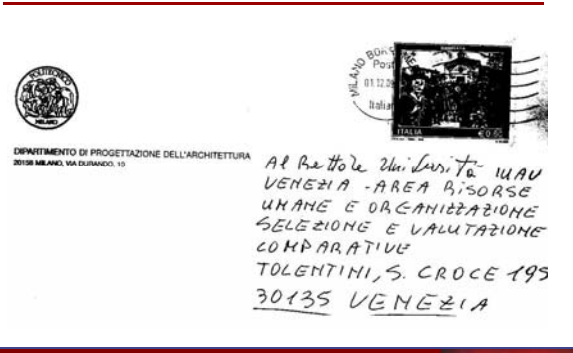 POLITECNICO
MILANO
DIPARTIMENTO DI PROGETTAZIONE DELL'ARCHITETTURA
20158 MILANO, VIA DURANDO, 10
MILANO BORR
Post
01.12.0
Italia
ITALIA
€0,60
Al Rettore Università IUAV
VENEZIA - AREA RISORSE
UMANE E ORGANIZZAZIONE
SELEZIONE E VALUTAZIONE
COMPARATIVE
TOLENTINI, S. CROCE 195
30135 VENEZIA